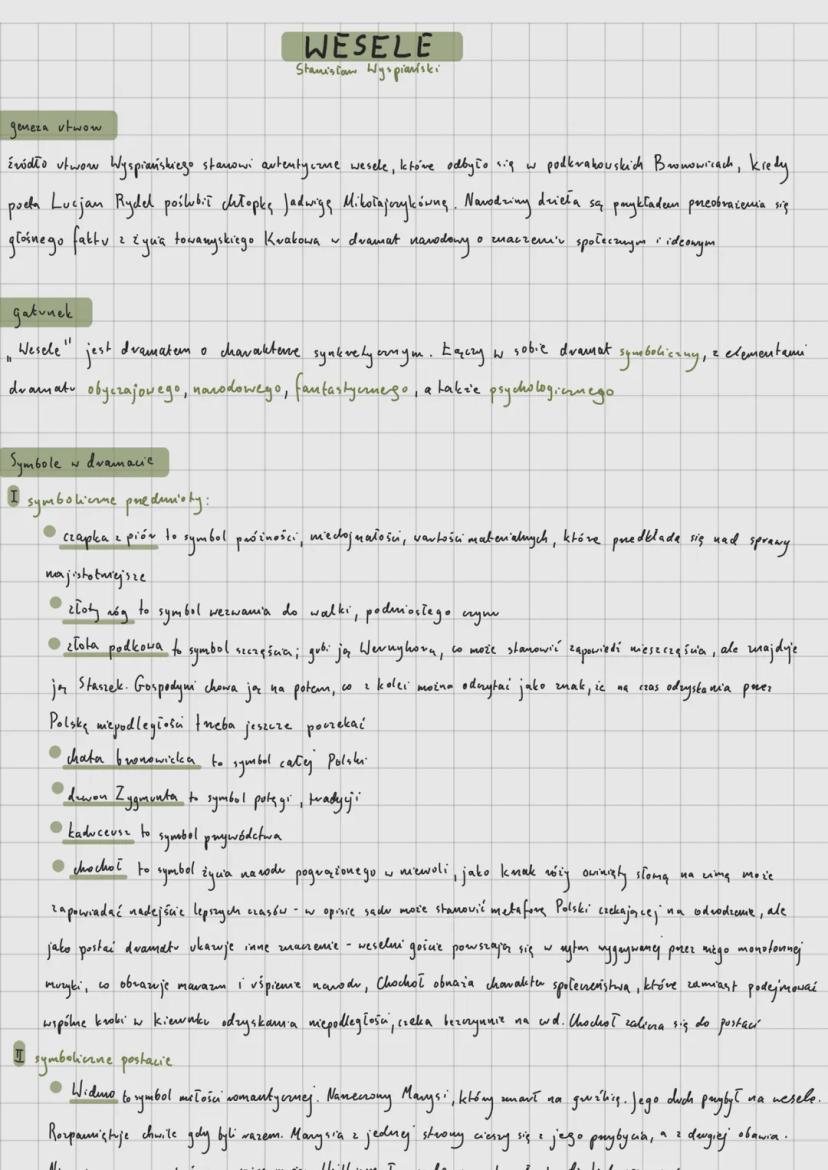 WESELE
Stanisław Wyspiański
geneza utworu
źródło utworu Wyspiańskiego stanowi autentyczne wesele, które odbyło się w podkrakowskich Bronowicach, kiedy
poeta Lucjan Rydel poślubił chłopkę Jadwigę Mikołajczykównę. Narodziny dzieła są przykładem przeobrażenia się
głośnego faktu z życia towarzyskiego Krakowa w dramat narodowy o znaczeniu społecznym i ideowym
gatunek
„Wesele" jest dramatem o charakterze synkretycznym. Łączy w sobie dramat symboliczny, z elementami
dramatu obyczajowego, narodowego, fantastycznego, a także psychologicznego
Symbole w dramacie
I symboliczne przedmioty:
czapka z piór to symbol próżności, niedojrzałości, wartości materialnych, które przedkłada się nad sprawy
najistotniejsze
złoty róg to symbol wezwania do walki, podniosłego czynu
złota podkowa to symbol szczęścia; gubi ją Wernyhora, co może stanowić zapowiedź nieszczęścia, ale znajduje
ją Staszek. Gospodyni chowa ją na potem, co z kolei można odczytać jako znak, że na czas odzyskania przez
Polskę niepodległości trzeba jeszcze poczekać
chata bronowicka to symbol całej Polski
dzwon Zygmunta to symbol potęgi, tradycji
kaduceusz to symbol przywództwa
chochoł to symbol życia narodu pogrążonego w niewoli, jako krzak róży owinięty słomą na zimą może
zapowiadać nadejście lepszych czasów - w opisie sadu może stanowić metaforę Polski czekającej na odrodzenie, ale
jako postać dramatu ukazuje inne znaczenie - weselni goście poruszają się w rytm wygrywanej przez niego monotonnej
muzyki, co obrazuje marazm i uśpienie narodu, Chochoł obnaża charakter społeczeństwa, które zamiast podejmować
wspólne kroki w kierunku odzyskania niepodległości, czeka bezczynnie na cud. Chochoł zalicza się do postaci
II symboliczne postacie
Widmo to symbol miłości romantycznej. Narzeczony Marysi, który zmarł na gruźlicę. Jego duch przybył na wesele.
Rozpamiętuje chwile gdy byli razem. Marysia z jednej strony cieszy się z jego przybycia, a z drugiej obawia.